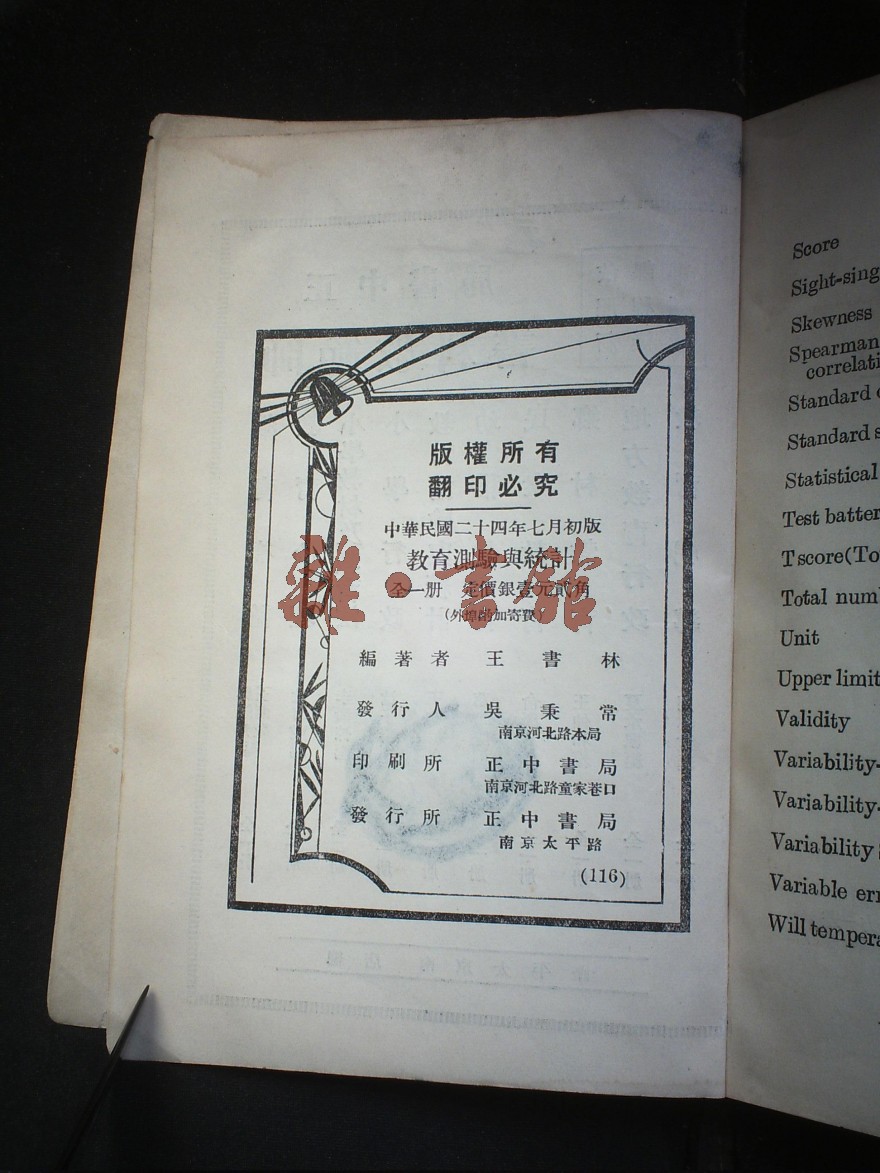 版權所有
翻印必究
中華民國二十四年七月初版
教育測驗與統計
全一册 定價銀壹元貳角
(外埠酌加寄費)
編著者 王書林
發行人 吳秉常
南京河北路本局
印刷所 正中書局
南京河北路童家巷口
發行所 正中書局
南京太平路
(116)
雜·書館
Score
Sight-sing
Skewness
Spearman
correlati
Standard
Standard s
Statistical
Test batter
T score (To
Total num
Unit
Upper limit
Validity
Variability-
Variability-
Variability
Variable err
Will tempera